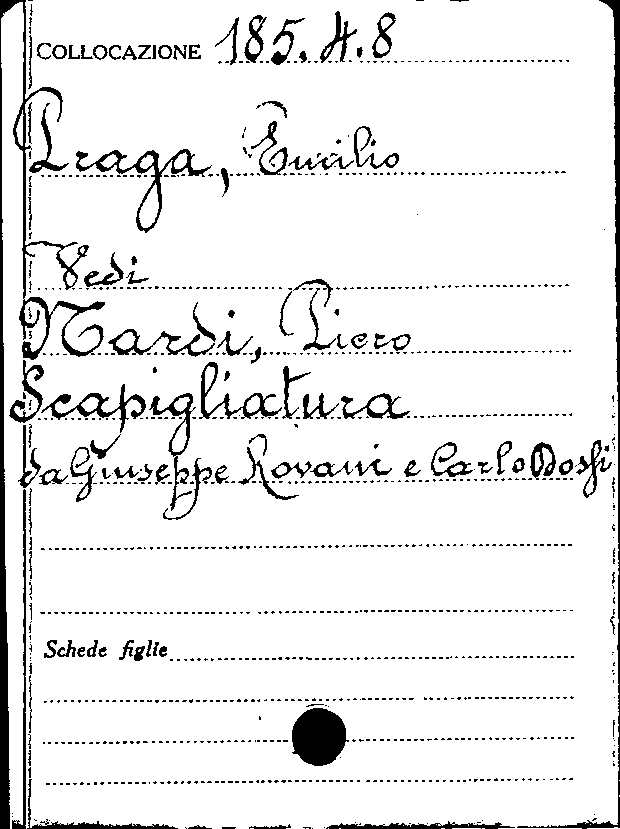 COLLOCAZIONE 185.4.8
Praga, Emilio
Vedi
Nardi, Piero
Scapigliatura
da Giuseppe Rovani e Carlo Dossi
Schede figlie